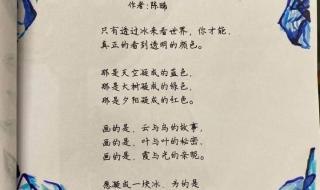 作者:陈瑞
只有透过冰来看世界,你才能,
真正的看到透明的颜色。
那是天空凝成的蓝色,
那是大树凝成的绿色,
那是夕阳凝成的红色。
画的是、云与鸟的故事,
画的是、叶与叶的秘密,
画的是、霞与光的亲昵。
愿凝成一块冰、为的是